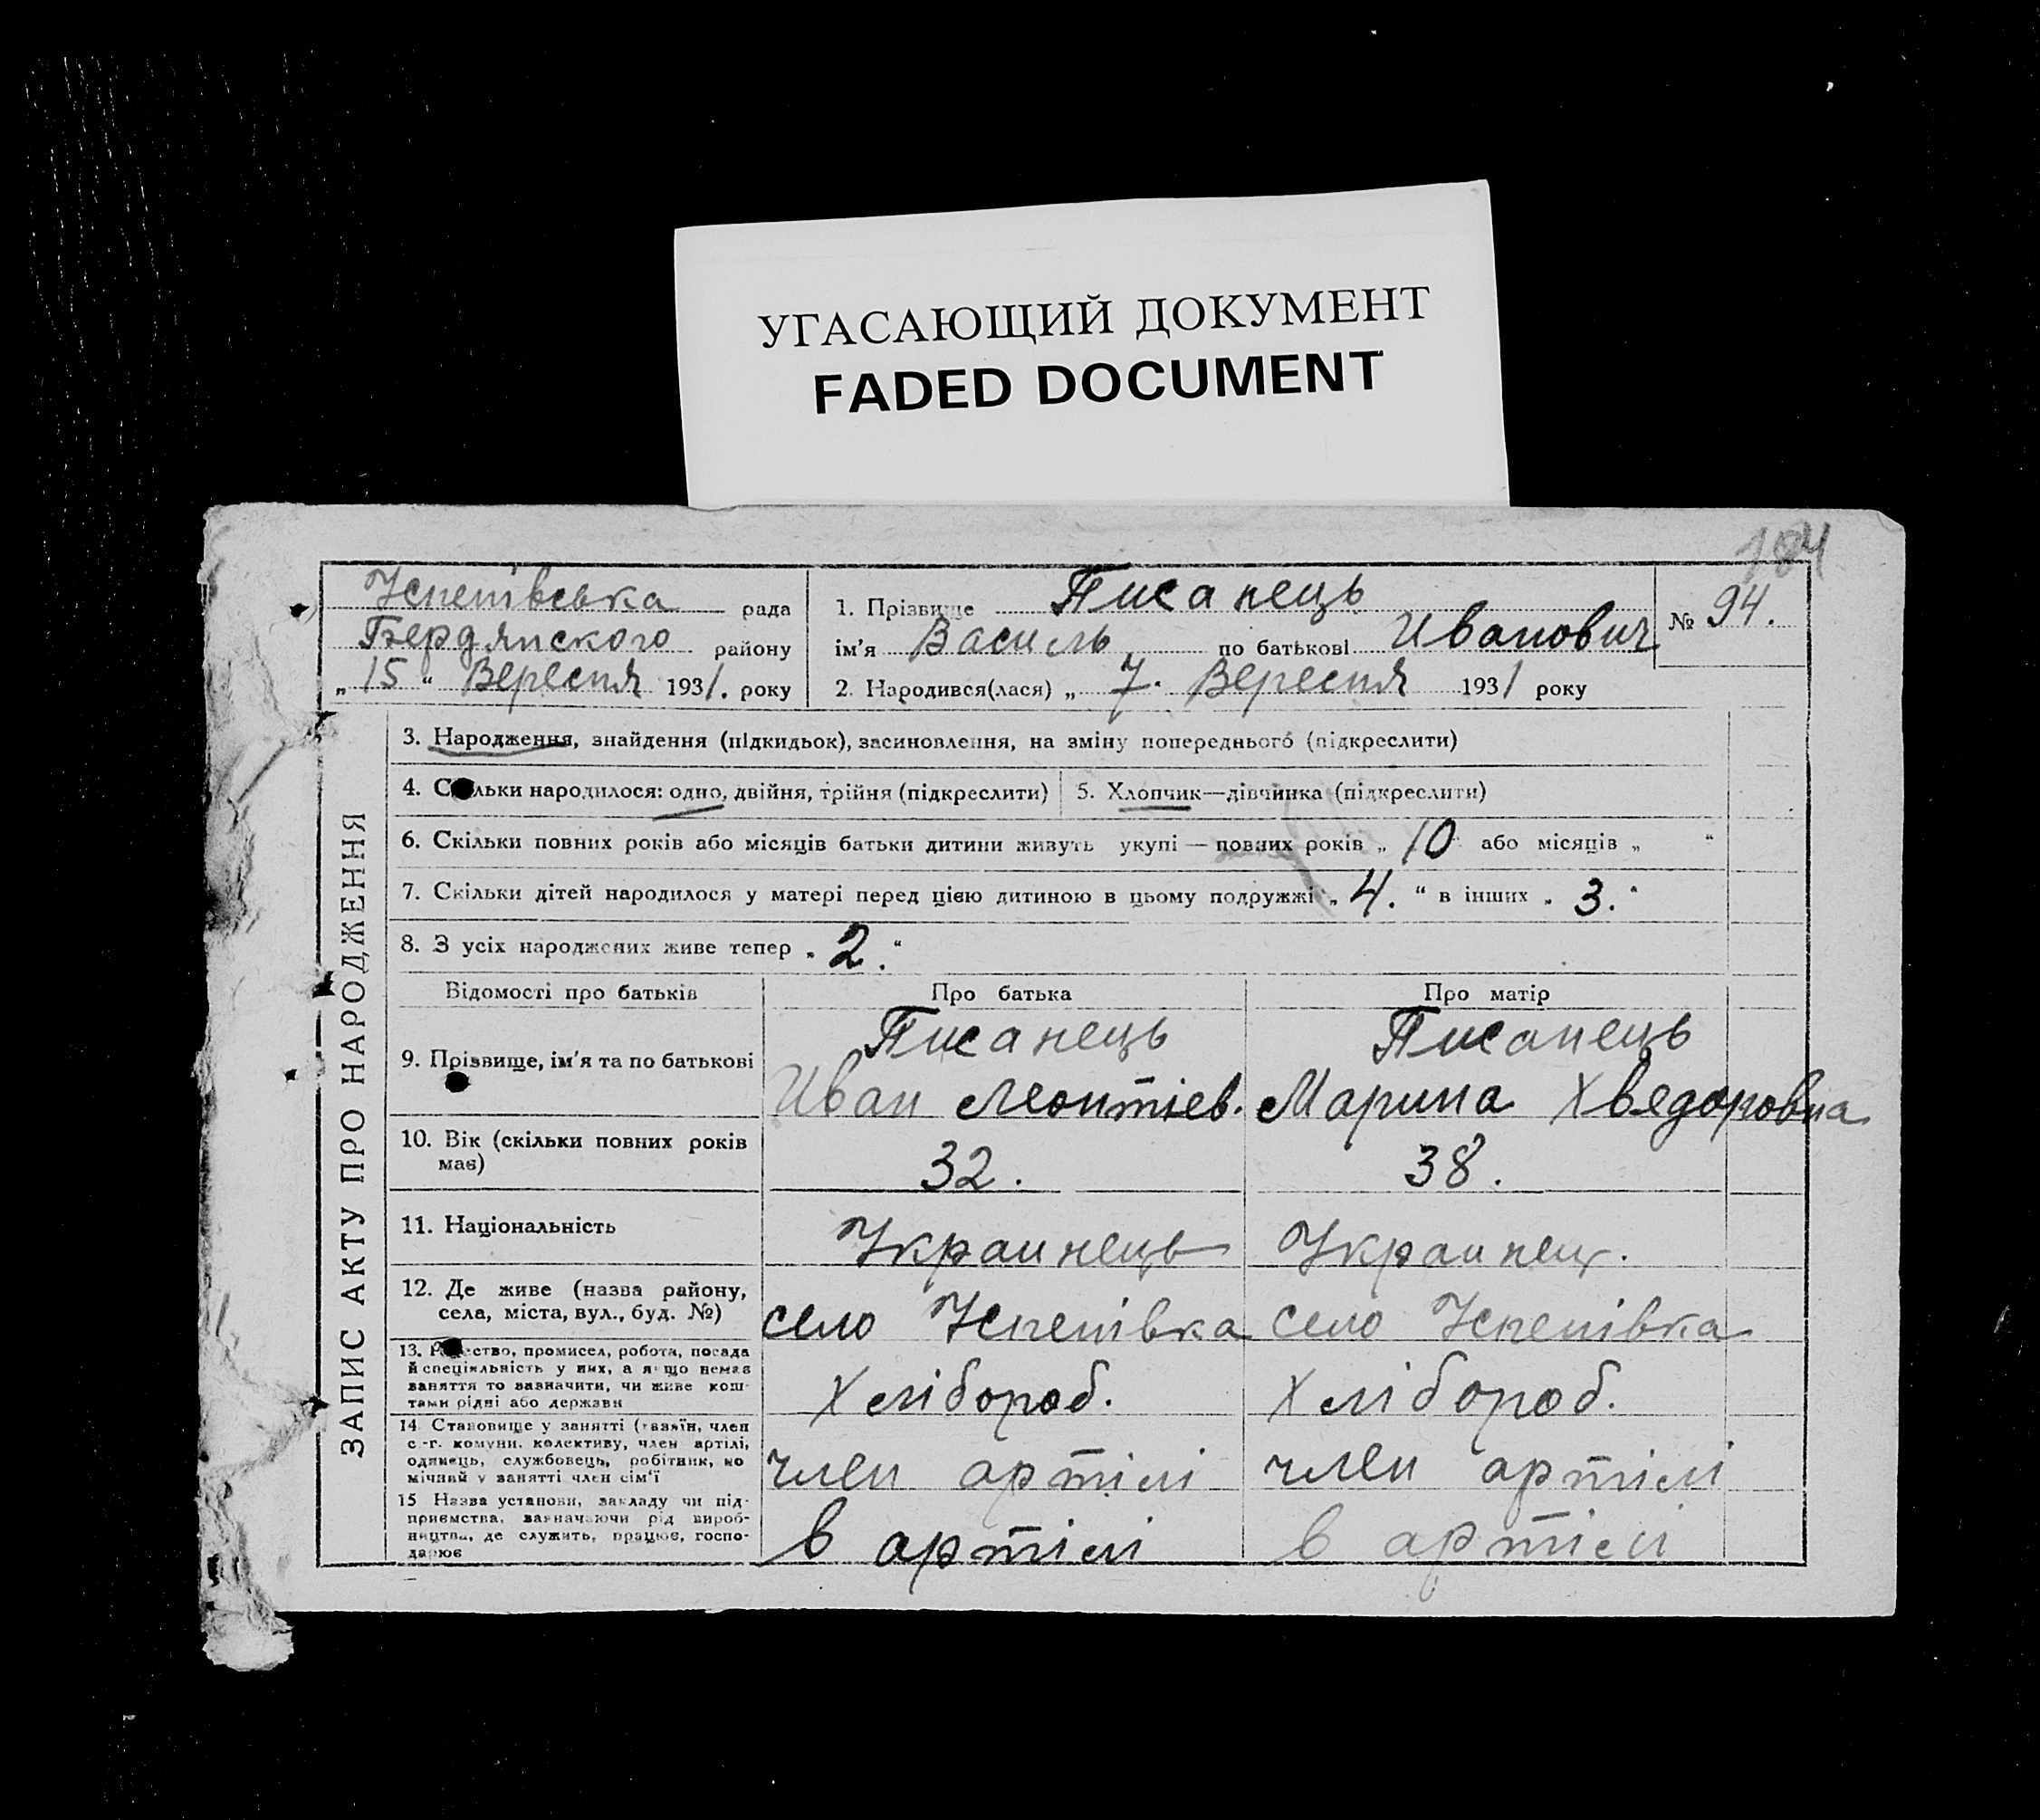 УГАСАЮЩИЙ ДОКУМЕНТ
FADED DOCUMENT
184
Успенівська рада
Бердянского району
„ 15 “ Вересня 1931. року
1. Прізвище Писанець
ім’я Василь по батькові Иванович
№ 94.
2. Народився(лася) „ 7. Вересня 1931 року
ЗАПИС АКТУ ПРО НАРОДЖЕННЯ
3. Народження, знайдення (підкидьок), засиновлення, на зміну попереднього (підкреслити)
4. Скільки народилося: одно, двійня, трійня (підкреслити) 5. Хлопчик—дівчинка (підкреслити)
6. Скільки повних років або місяців батьки дитини живуть укупі — повних років „ 10 “ або місяців „ “
7. Скільки дітей народилося у матері перед цією дитиною в цьому подружжі „ 4. “ в інших „ 3. “
8. З усіх народжених живе тепер „ 2. “
Відомості про батьків Про батька Про матір
9. Прізвище, ім’я та по батькові
Писанець Писанець
Иван Леонтіев. Марина Хведоровна
10. Вік (скільки повних років
має)
32. 38.
11. Національність Украинець Украинец.
12. Де живе (назва району,
села, міста, вул., буд. №)
село Успенівка село Успенівка
13. Р ество, промисел, робота, посада
й спеціяльність у них, а якщо немає
заняття то зазначити, чи живе кош-
тами рідні або держави
Хлібороб. Хлібороб.
14. Становище у занятті (хазяїн, член
с.-г. комуни, колективу, член артілі,
одинець, службовець, робітник, по
мічний у занятті член сім’ї
член артілі член артілі
15 Назва установи, закладу чи під-
приємства, зазначаючи рід вироб-
ництва, де служить, працює, госпо-
дарює
в артілі в артілі